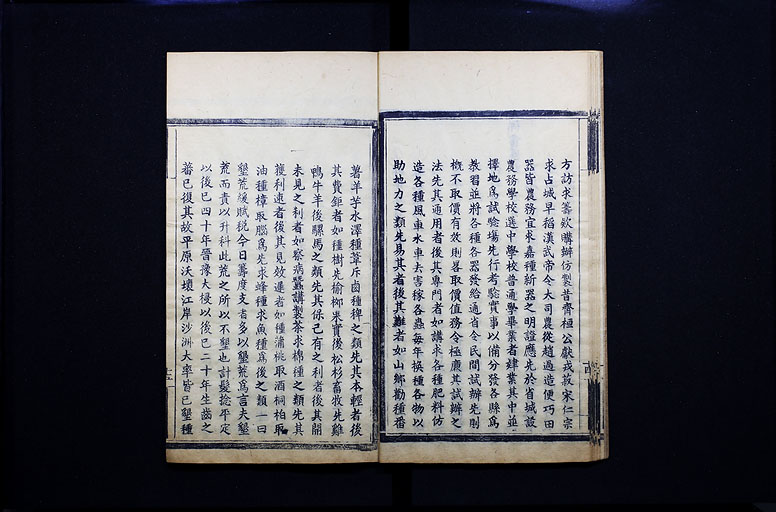 方訪求籌欵購辦仿製昔齊桓公獻戎菽宋仁宗
求占城早稻漢武帝令大司農從趙過造便巧田
器皆農務宜求嘉種新器之明證應先於省城設
農務學校選中學校普通學畢業者肄業其中並
擇地爲試驗場先行考驗實事以備分發各縣爲
教習並將各種各器發給通省令民間試辦先則
概不取價有效則畧取價值務令極廉其試辦之
法先其通用者後其專門者如講求各種肥料仿
造各種風車水車去害稼各蟲每年換種各物以
助地力之類先易其者後其難者如山鄉勸種番
薯羊芋水澤種葦斥鹵種稗之類先其本輕者後
其費鉅者如種樹先榆柳果實後松杉畜牧先雞
鴨牛羊後騾馬之類先其保已有之利者後其開
未見之利者如察病蠶講製茶求棉種之類先其
獲利速者後其見效遲者如種蒲桃取酒桐柏取
油種樟取腦爲先求蜂種求魚種爲後之類一曰
墾荒緩賦稅今日籌度支者多以墾荒爲言夫墾
荒而責以升科此荒之所以不墾也計髮捻平定
以後已四十年晉豫大祲以後已二十年生齒之
蕃已復其故平原沃壤江岸沙洲大率皆已墾種